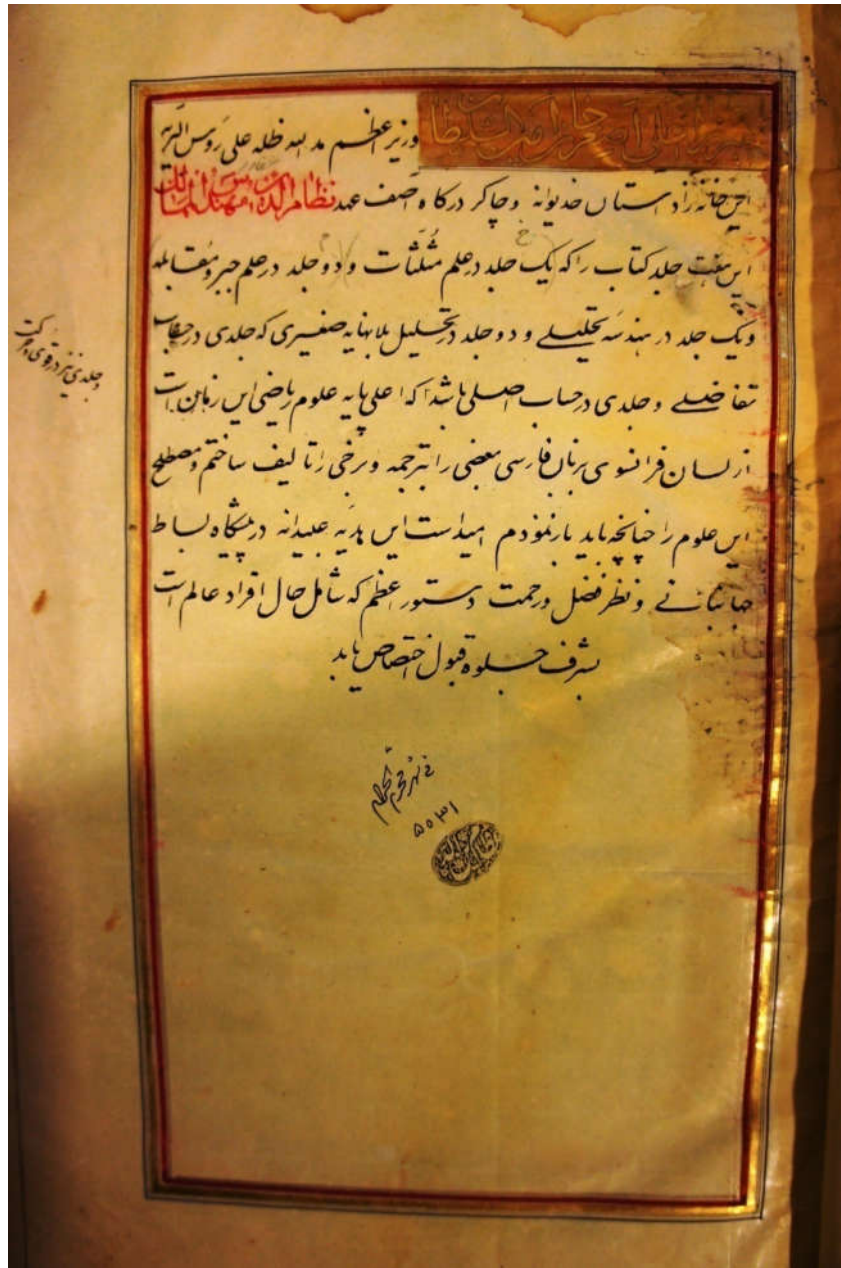 علی اصغر خان امین السلطان وزیر اعظم مد الله ظله علی رؤس البریه
این خانه زاد استان خدیوانه و چاکر درگاه آصف عهد نظام الدین مهندس الممالک
این هفت جلد کتاب را که یک جلد در علم مثلثات و دو جلد در علم جبر و مقابله
ویک جلد در هندسه تحلیلے و دو جلد در تحلیل بلانهایه صغیری که جلدی در حساب
تفاضلے و جلدی در حساب اصلی باشد که اعلی پایه علوم ریاضی این زمان است
از لسان فرانسوی بزبان فارسی بعضی را ترجمه و برخی را تالیف ساختم و مصطلح
این علوم را چنانچه باید باز نمودم امید است این هدیه عبیدانه در پیشگاه بساط
جهانبانے و نظر فضل و رحمت دستور اعظم که شامل حال افراد عالم است
بشرف جلوه قبول اختصاص یابد
و جلدی نیز در قوی و حرکت
فی شهر محرم الحرام
۵۰۳۱